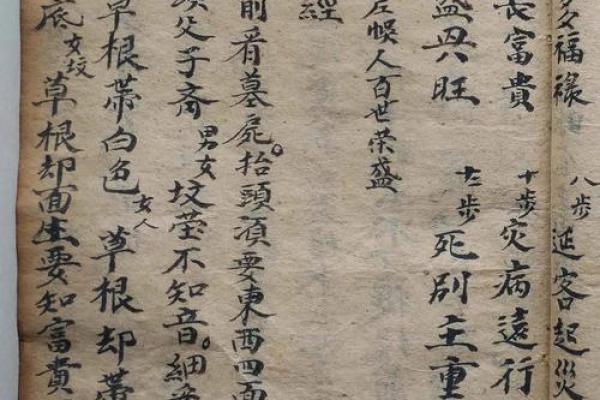 多福祿 八步 延客起災
長富貴 十步 灾病遠行
益興旺 十二步 死别主重
左悞人百世荣盛
經
前看墓屍。抬頭須要東西四面
父子斋 男女 坟茔不知音。細
草根帶白色 女人 草根却帶
底 女坟 草根却面生要知富貴